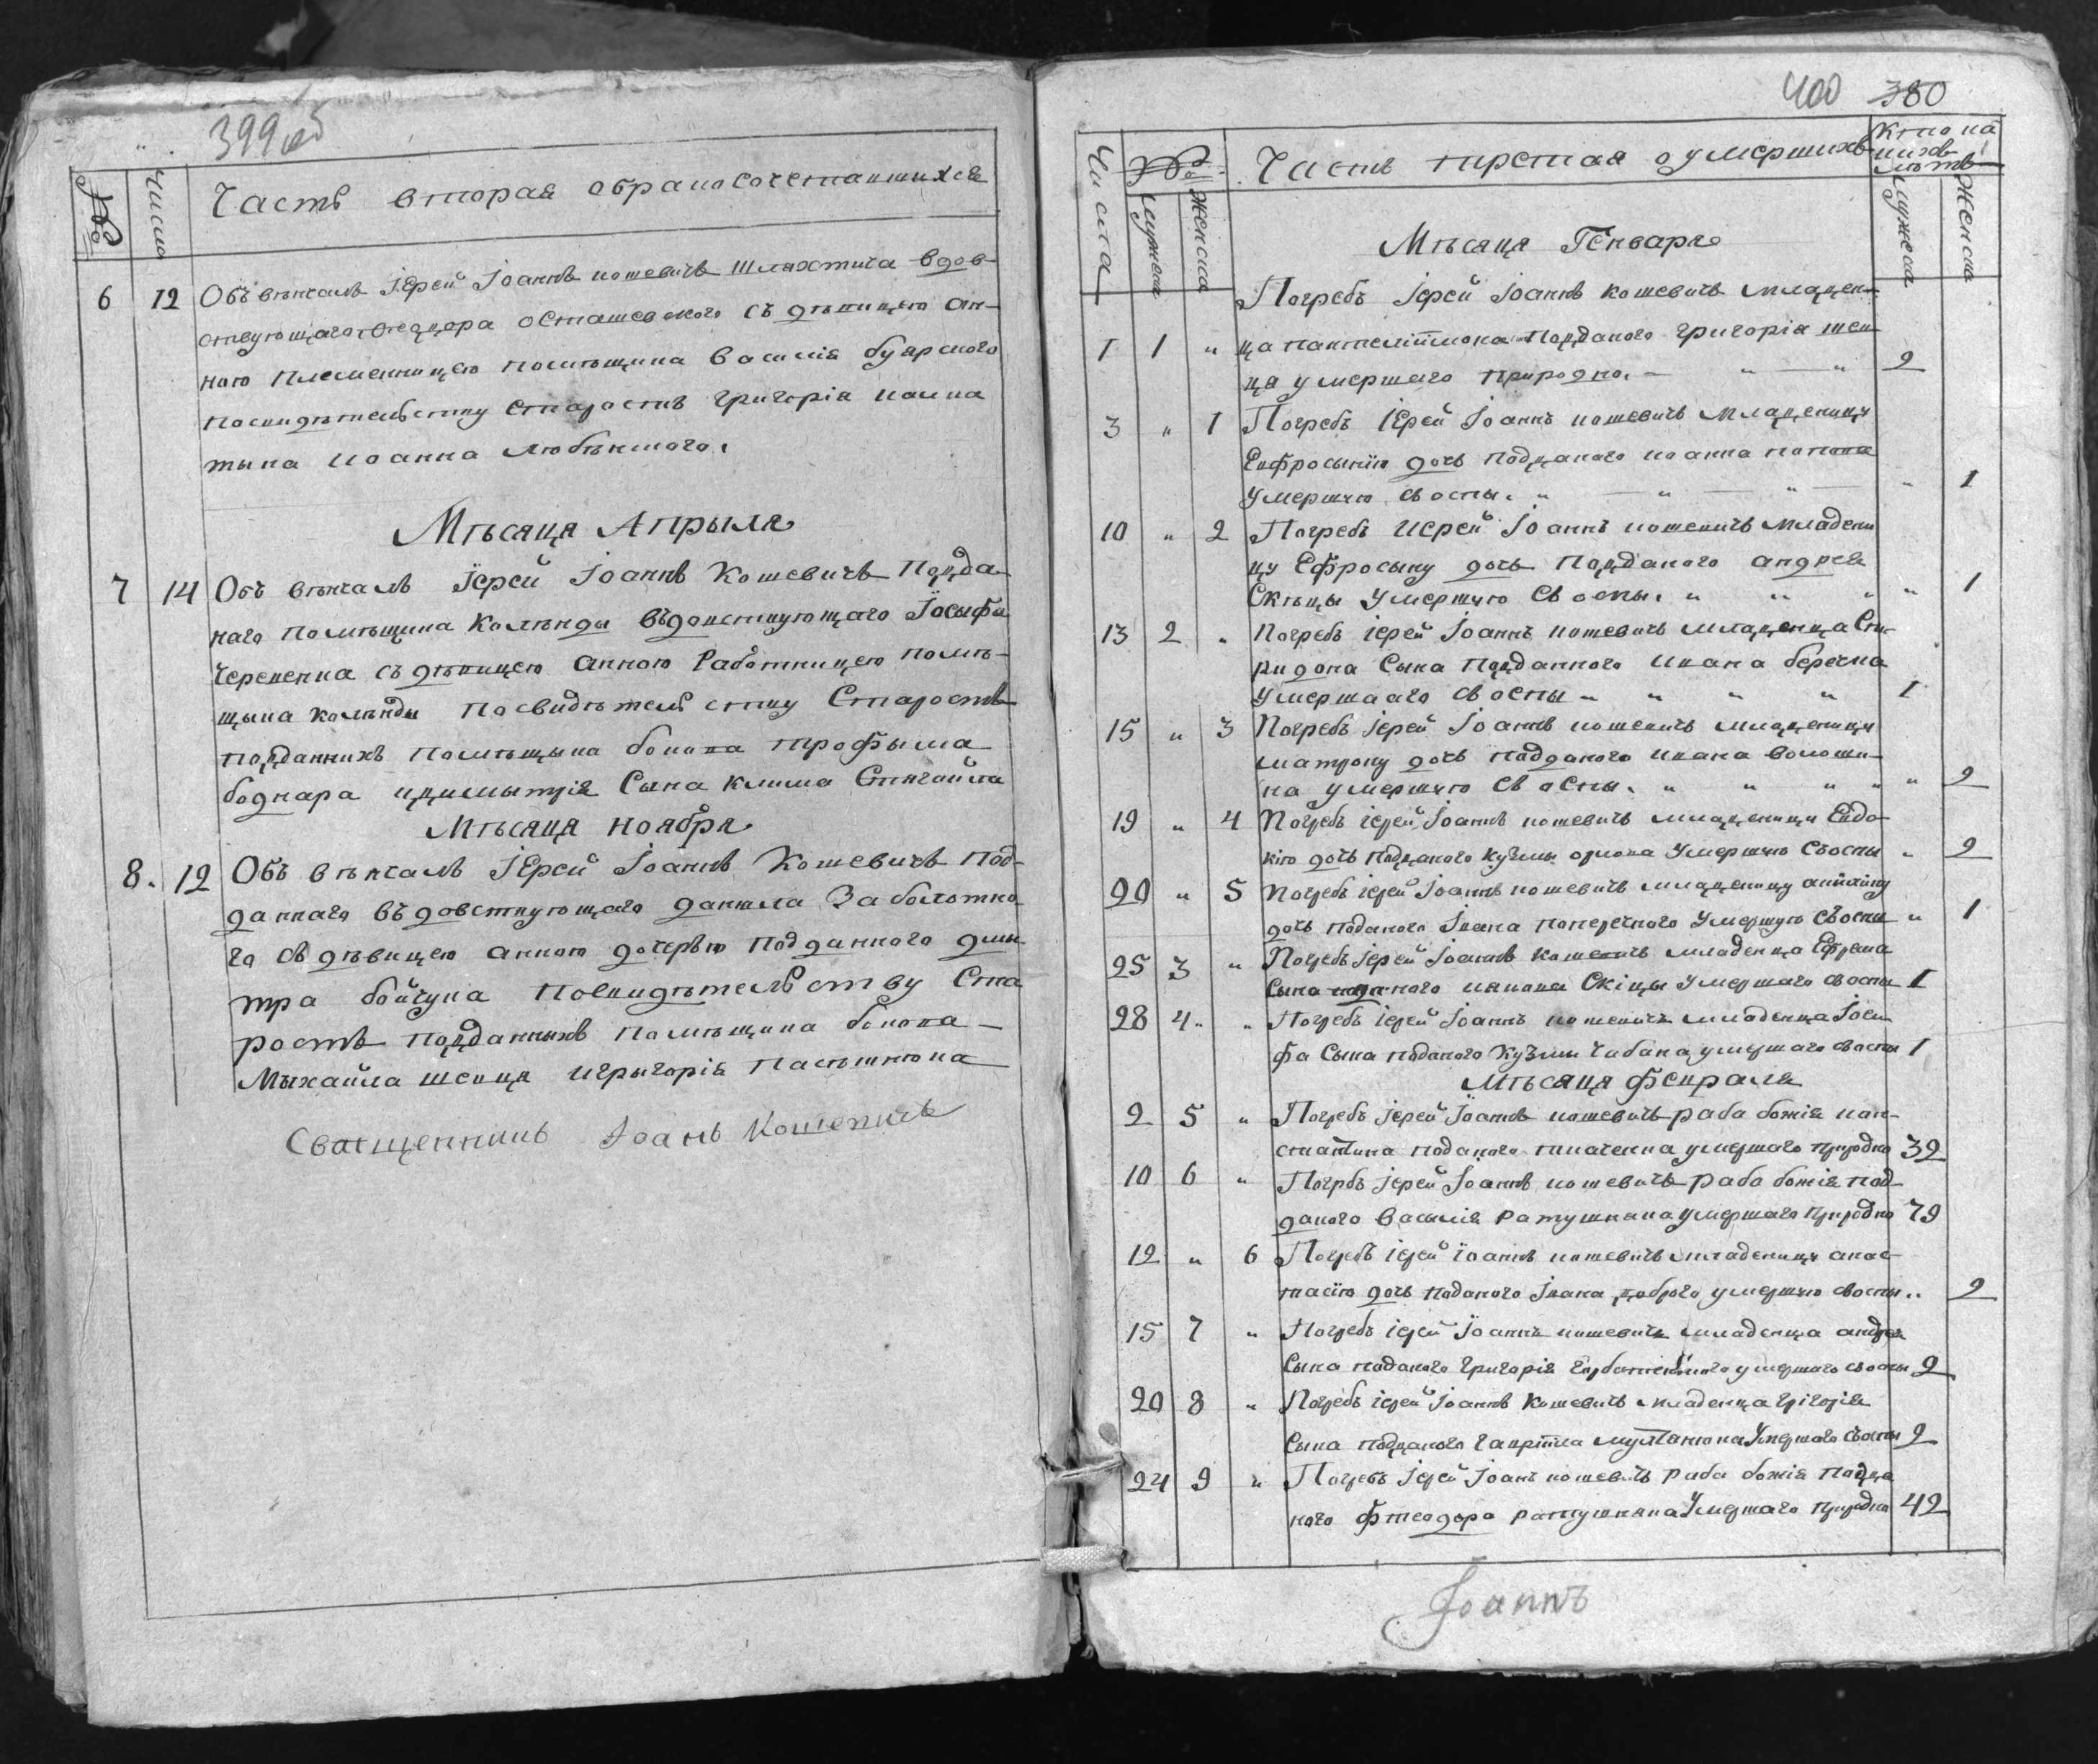 399 об
№
Числа
Часть вторая обракосочетавшихся
6 12 Объвѣнчалъ Іерей Іоаннъ кошевичъ Шляхтича вдов-
ствующаго Феодора осташевского съ дѣвицею Ан-
ною племенницею помѣщика Василія буярского
посвидѣтельству Старостъ григорія
Иоанна любѣнкого.
Мѣсяца Апрыля
7 14 Объ вѣнчалъ Іерей Іоаннъ Кошевичъ Подда-
наго помѣщика Колѣнды въдовствующаго Іосыфа
Черевенка съ дѣвицею Анною Работницею помѣ-
щыка колѣнды посвидѣтельству Старостъ
подданныхъ помѣщыка Трофыма
боднара идимытрія Сына клима
Мѣсяца ноября
8. 12 Объ вѣнчалъ Іерей Іоаннъ Кошевичъ под-
даннаго въдовствующаго данила Заболотно
го съ дѣвицею анною дочерью подданного дми
тра бойчука Посвидѣтельству Ста
ростъ подданныхъ помѣщика
Мыхайла шевця игрыгорія
Священникъ Іоанъ Кошевичъ
400 380
Числа
№
мужеска
женска
Часть третая оумершихъ
Кто ка
кихъ
лѣтъ
мужеска
женска
Мѣсяца Генваря
Погребъ Іерей Іоаннъ кошевичъ младен-
1 1 " ца подданого григорія шев
ца умершаго природно. — " — " 2
3 " 1 Погребъ Іерей Іоаннъ кошевичъ младеницу
Евфросынію дочь подданого иоанна попова
умершую съ оспы. " — " — " — " 1
10 " 2 Погребъ Иерей Іоаннъ кошевичъ младени
цу Ефросыну дочь подданого андрея
Скѣцы умершую съ оспы. " " " " 1
13 2 " Погребъ іерей Іоаннъ кошевичъ младенца Спи-
ридона Сына подданного ивана
умершаго съ оспы " " " " 1
15 " 3 Погребъ Іерей Іоаннъ кошевичъ младеницу
матрону дочь подданого ивана волоши-
на умершую съ оспы. " " " " " 2
19 " 4 Погребъ іерей Іоаннъ кошевичъ младеницу Евдо-
кію дочь подданого кузмы орлова Умершую съоспы " 2
20 " 5 Погребъ іерей Іоаннъ кошевичъ младеницу
дочь поданого Ивана поперечного умершую съоспы " 1
25 3 " Погребъ Іерей Іоаннъ кошевичъ младенца Ефрема
Сына якова Скіцы умершаго съоспы 1
28 4. " Погребъ іерей Іоаннъ кошевичъ младенца Іоси
фа Сына поданого кузмы чабана умершаго съоспы 1
Мѣсяца февраля
2 5 " Погребъ іерей Іоаннъ кошевичъ раба божія кон-
стантина поданого ткаченка умершаго природно 32
10 6 " Погрбъ іерей Іоаннъ кошевичъ раба божія под-
даного василія ратушняка умершаго природно 79
12 " 6 Погребъ іерей іоаннъ кошевичъ младеницу анас-
тасію дочь поданого Івана доброго умершую съоспы " 2
15 7 " Погребъ іерей Іоаннъ кошевичъ младенца андрея
Сына поданого григорія умершаго съоспы 2
20 8 " Погребъ іерей Іоаннъ кошевичъ младенца грігорія
Сына подданого гавріила Умершаго съоспы 2
24 9 " Погребъ іерей Іоанъ кошевичъ раба божія подда
ного фтеодора ратушняка Умершаго природно 42
Іоаннъ